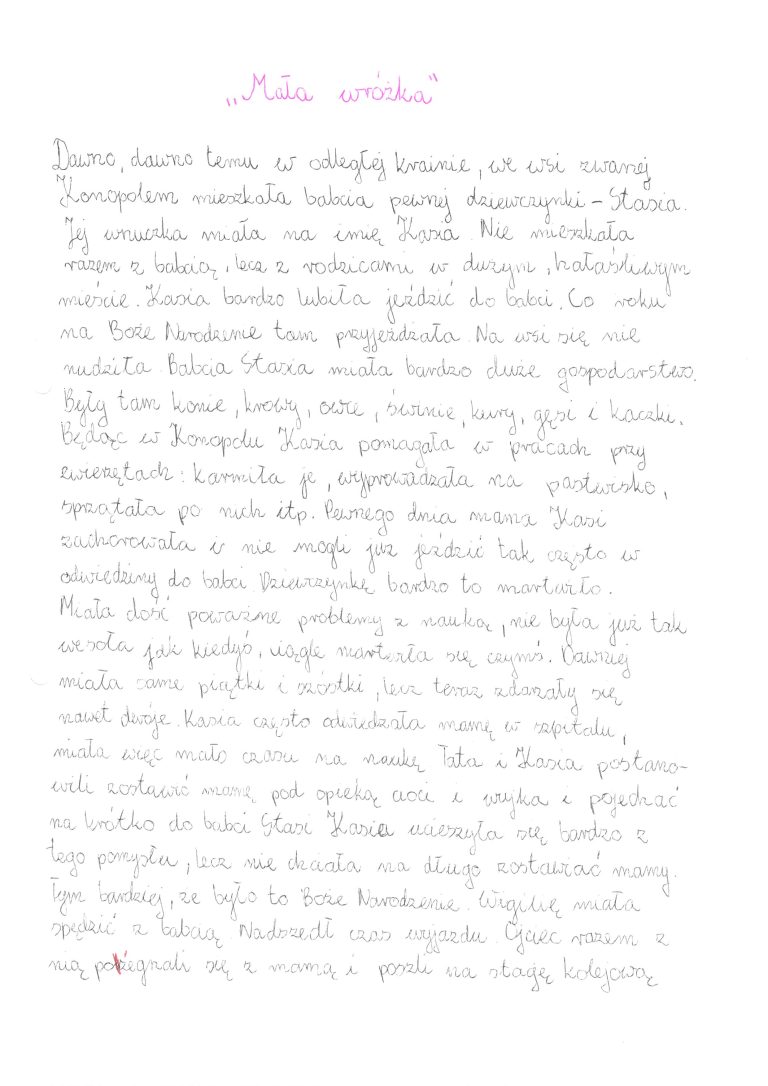 „Mała wróżka”
Dawno, dawno temu w odległej krainie, we wsi zwanej
Konopolem mieszkała babcia pewnej dziewczynki – Stasia.
Jej wnuczka miała na imię Kasia. Nie mieszkała
razem z babcią, lecz z rodzicami w dużym, hałaśliwym
mieście. Kasia bardzo lubiła jeździć do babci. Co roku
na Boże Narodzenie tam przyjeżdżała. Na wsi się nie
nudziła. Babcia Stasia miała bardzo duże gospodarstwo.
Były tam konie, krowy, owce, świnie, kury, gęsi i kaczki.
Będąc w Konopolu Kasia pomagała w pracach przy
zwierzętach: karmiła je, wyprowadzała na pastwisko,
sprzątała po nich itp. Pewnego dnia mama Kasi
zachorowała i nie mogli już jeździć tak często w
odwiedziny do babci. Dziewczynkę bardzo to martwiło.
Miała dość poważne problemy z nauką, nie była już tak
wesoła jak kiedyś, ciągle martwiła się czymś. Dawniej
miała same piątki i szóstki, lecz teraz zdarzały się
nawet dwóje. Kasia często odwiedzała mamę w szpitalu,
miała więc mało czasu na naukę. Tata i Kasia postano-
wili zostawić mamę pod opieką cioci i wujka i pojechać
na krótko do babci Stasi. Kasia ucieszyła się bardzo z
tego pomysłu, lecz nie chciała na długo zostawiać mamy.
Tym bardziej, że było to Boże Narodzenie. Wigilię miała
spędzić z babcią. Nadszedł czas wyjazdu. Ojciec razem z
nią pożegnali się z mamą i poszli na stację kolejową